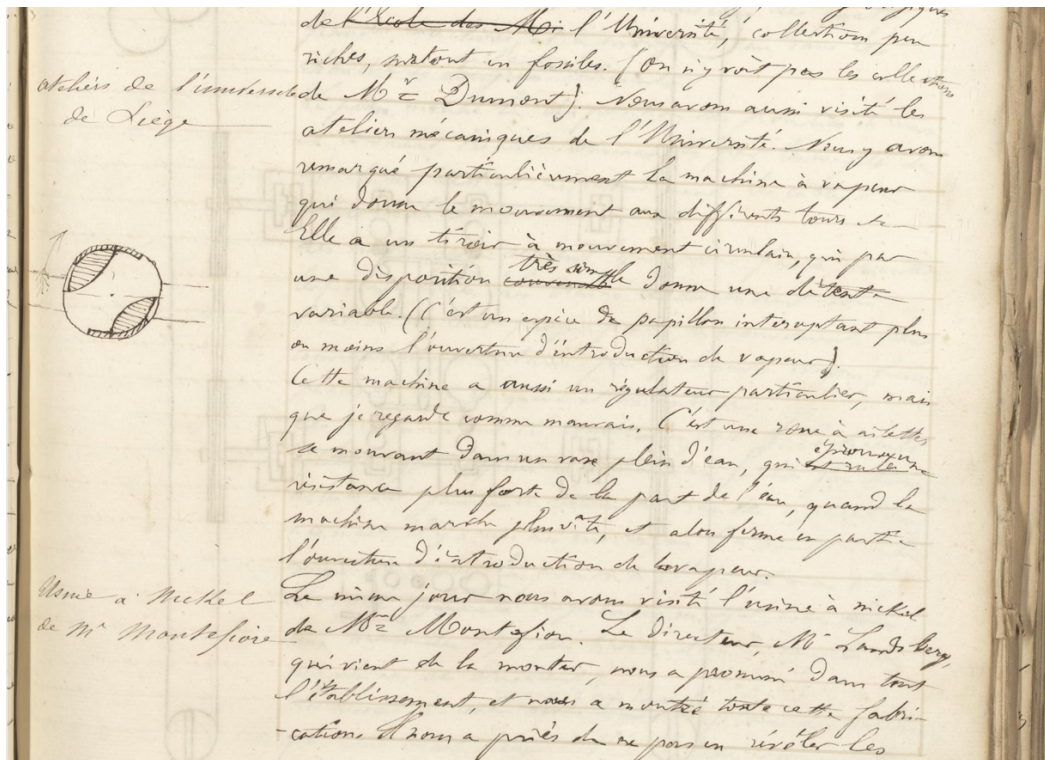 de l'École des Mi l'Université, collections peu
riches, surtout en fossiles. (On n'y voit pas les collections
ateliers de l'université
de Liège
de Mr Dumont). Nous avons aussi visité les
ateliers mécaniques de l'Université. Nous y avons
remarqué particulièrement la machine à vapeur
qui donne le mouvement aux différents tours
Elle a un tiroir à mouvement circulaire, qui par
une disposition très simple donne une détente
variable. (C'est une espèce de papillon interceptant plus
ou moins l'ouverture d'introduction de vapeur).
Cette machine a aussi un régulateur particulier, mais
que je regarde comme mauvais. C'est une roue à ailettes
se mouvant dans un vase plein d'eau, qui éprouve une
résistance plus forte de la part de l'eau, quand la
machine marche plus vite, et alors ferme en partie
l'ouverture d'introduction de la vapeur.
Usine à Nickel
de Mr Montefiore
Le même jour nous avons visité l'usine à nickel
de Mr Montefiore. Le directeur, Mr Landsberg,
qui vient de la monter, nous a promené dans tout
l'établissement, et nous a montré toute cette fabri-
-cation. Il nous a priés de ne pas en révéler les